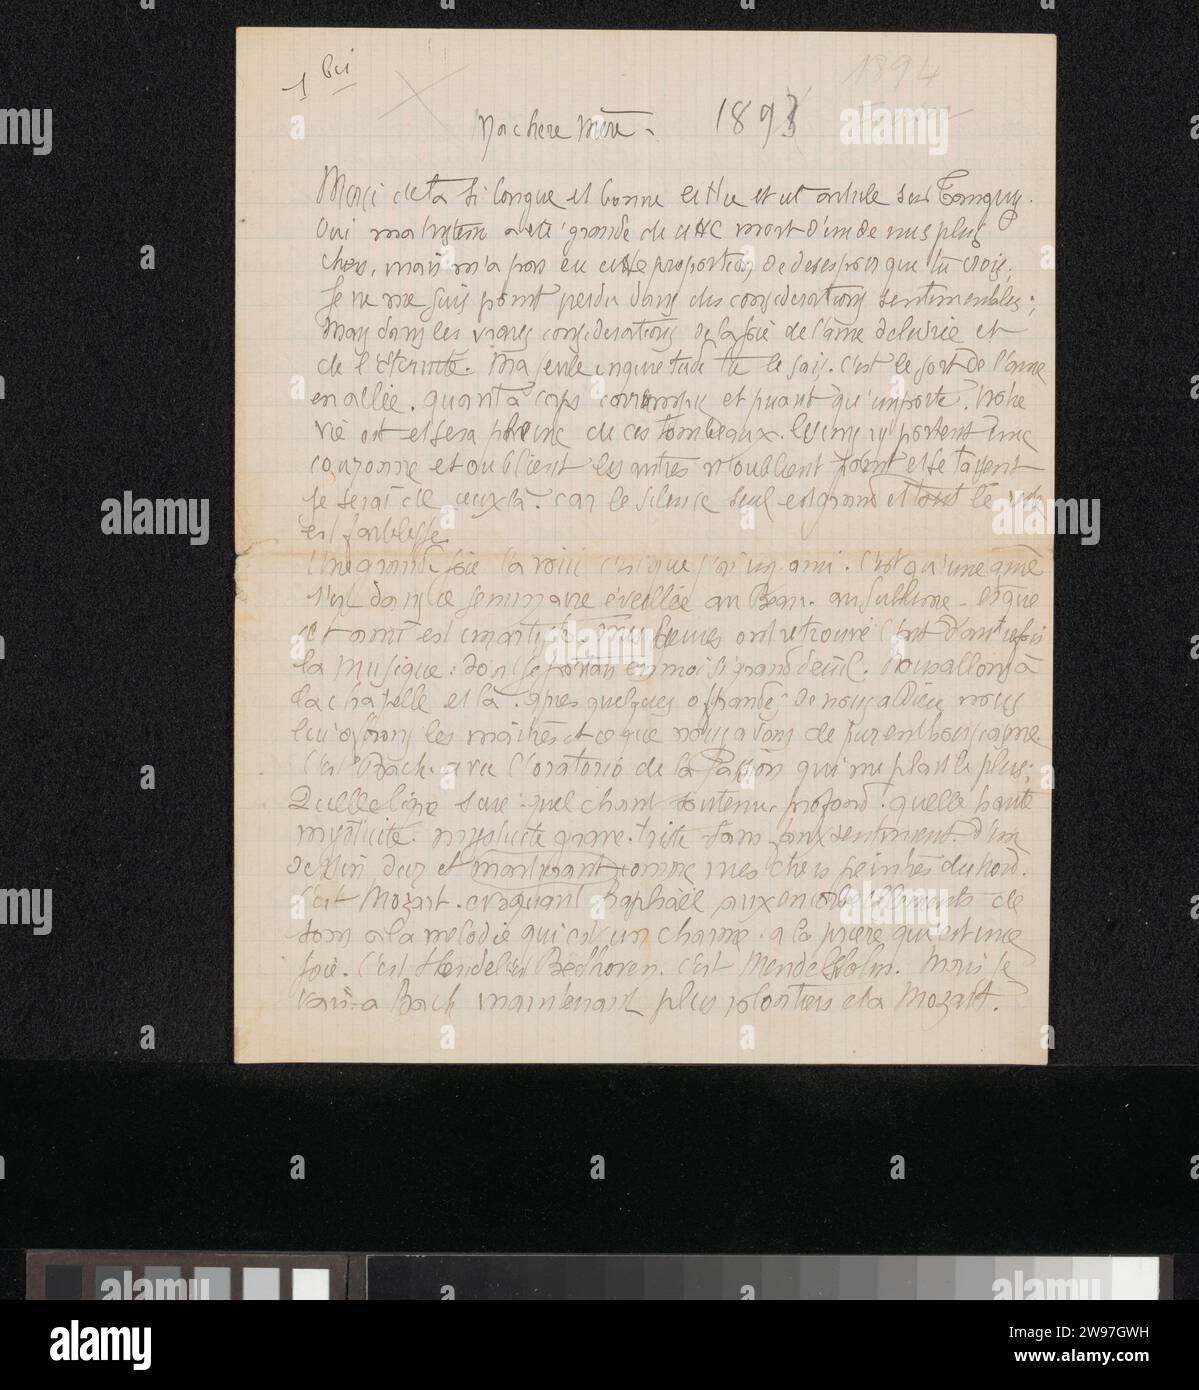 1 bis
1894
Ma chere Mère.
1893
Merci de ta si longue et bonne lettre et cet article sur Tanguy.
Oui ma tristesse a été grande de cette mort d'un de nus plus
chers, mais n'a pas eu cette proportion de desespoir que tu crois.
Je ne me suis point perdu dans des considerations sentimentales;
mais dans les vraies considerations de la foi de l'ame delivrée et
de l'Eternité. Ma seule inquietude tu le sais. c'est le sort de l'ame
en allée. quant à corps corrompu et puant qu'importe. Notre
vie est et sera pleine de ces tombeaux. les uns y portent une
couronne et oublient les autres n'oublient point et se taisent
je serai de ceux là. car le silence seul est grand et tout le reste
est faiblesse.
Une grande joie la voici c'est que j'ai un ami. C'est qu'une ame
s'est dans ce seminaire éveillée au Beau. au Sublime. et que
cet ami est un artiste. ont retrouvé
la musique: dont je portais en moi si grand deuil. nous allons à
la chapelle et là. après quelques offrandes de nous a Dieu nous
lui offrons les maitres et ce que nous avons de pur enthousiasme.
C'est Bach. avec l'oratorio de la Passion qui me plait le plus;
Quelle ligne sure: quel chant soutenu. profond. quelle haute
mysticité. mysticité grave. triste sans d'un
dessin dur et comme mes chers peintres du Nord.
C'est Mozart. evoquant Raphaël aux enorbellements de
tons a la melodie qui est un charme. a la priere qui est une
joie. C'est Hendel et Bethoven. c'est Mendelssohn. Mais je
vais a Bach maintenant plus volontiers et a Mozart.
alamy
Image ID: 2W97GWH
www.alamy.com